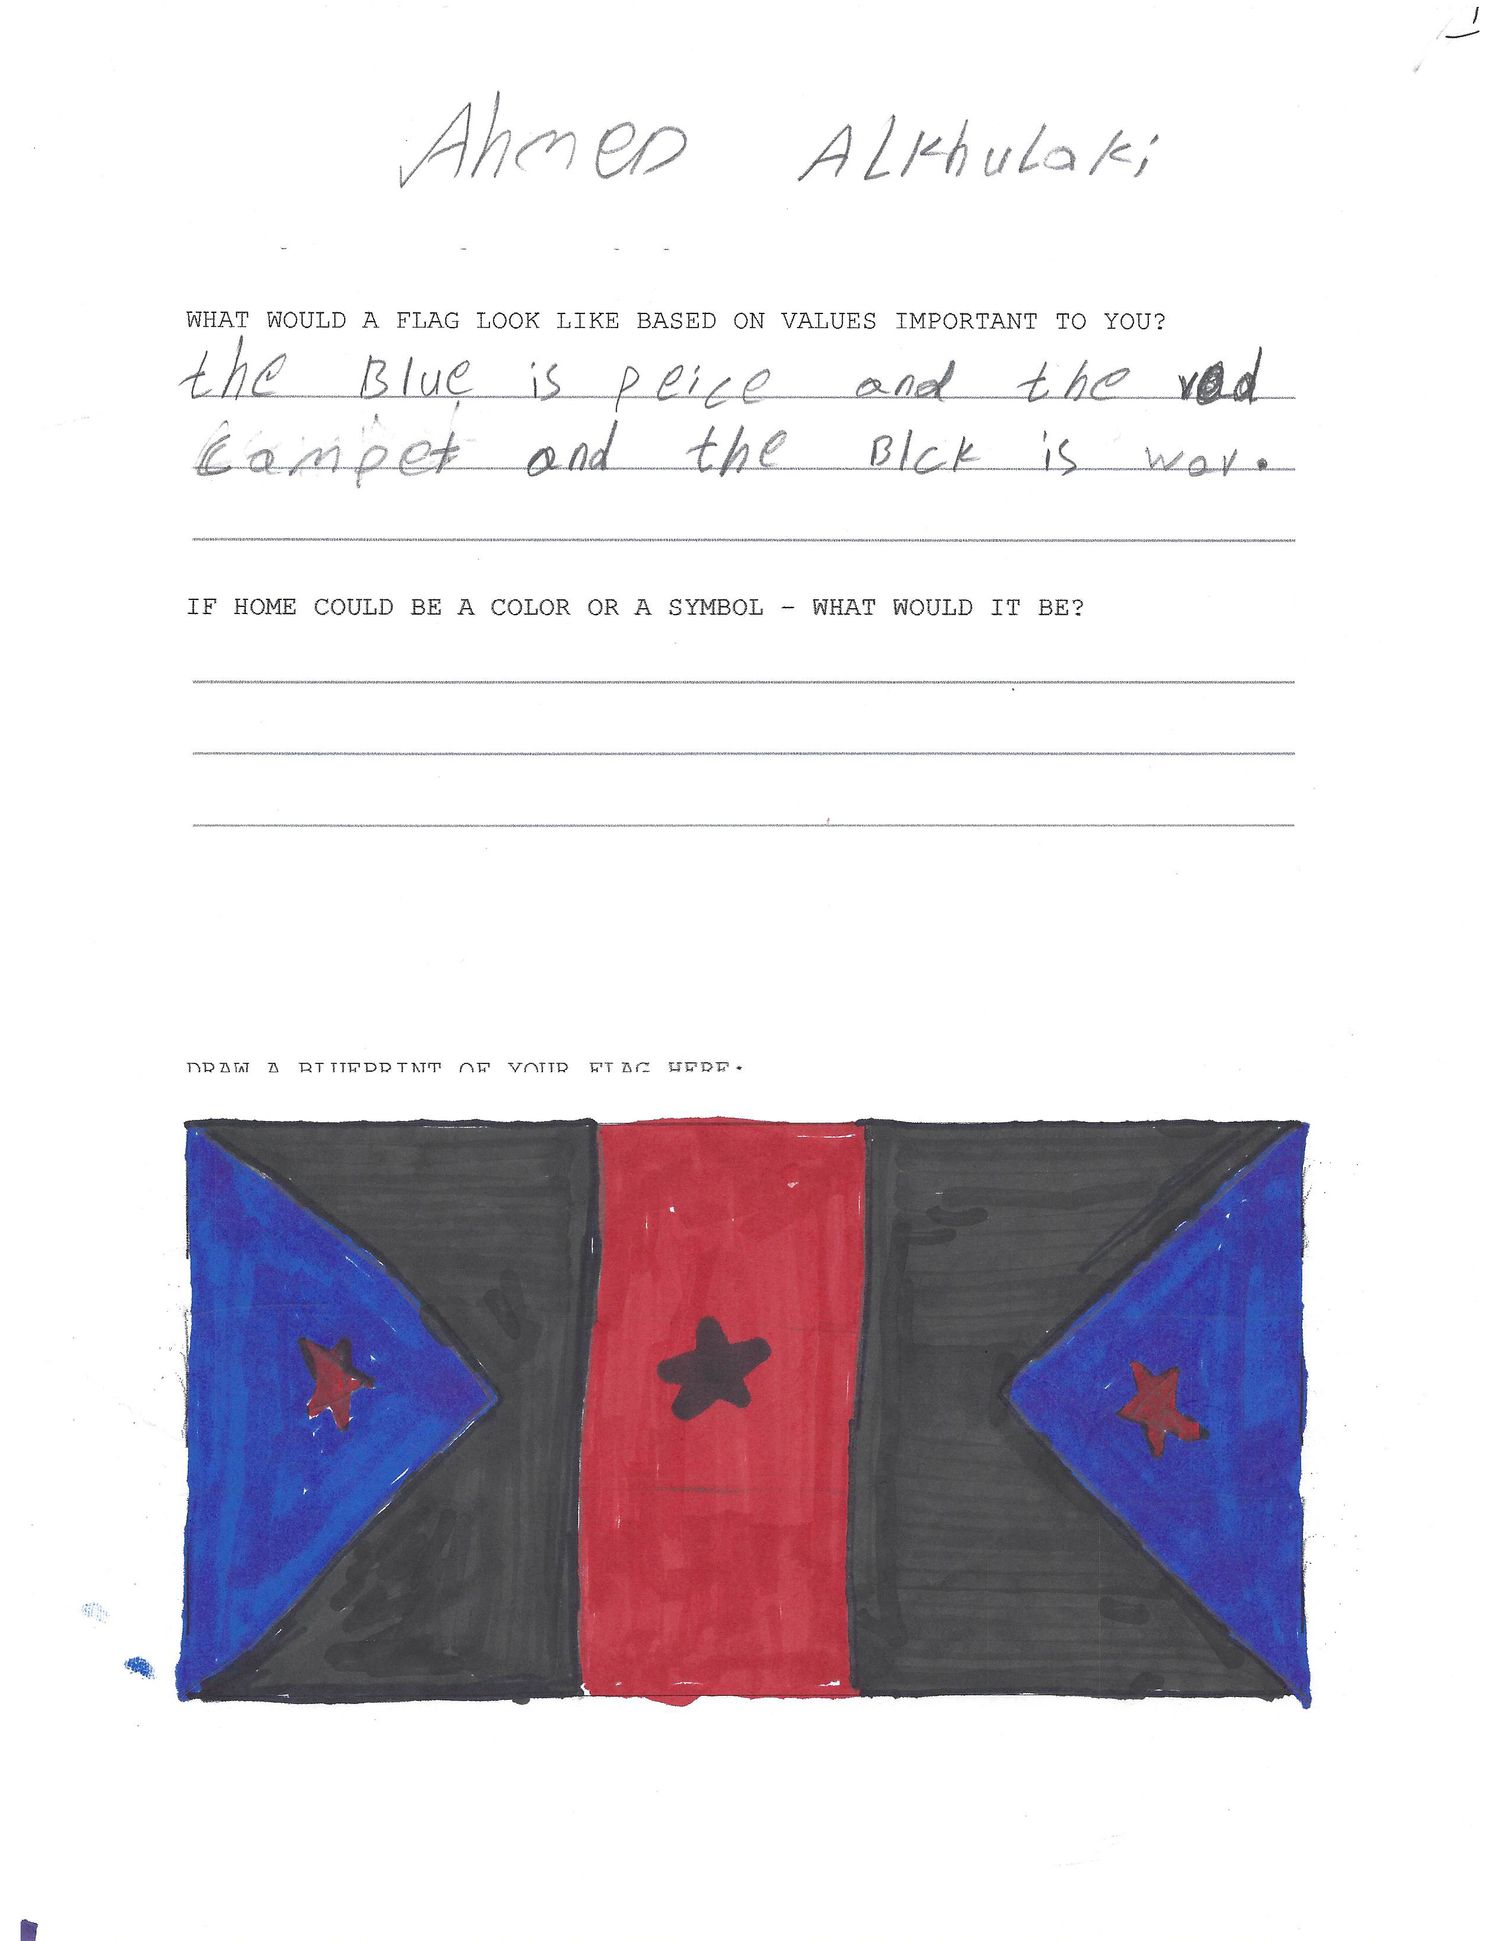 Ahmed Alkhulaki
WHAT WOULD A FLAG LOOK LIKE BASED ON VALUES IMPORTANT TO YOU?
the Blue is peice and the red
campet and the Blck is war.
IF HOME COULD BE A COLOR OR A SYMBOL – WHAT WOULD IT BE?
DRAW A BLUEPRINT OF YOUR FLAG HERE.